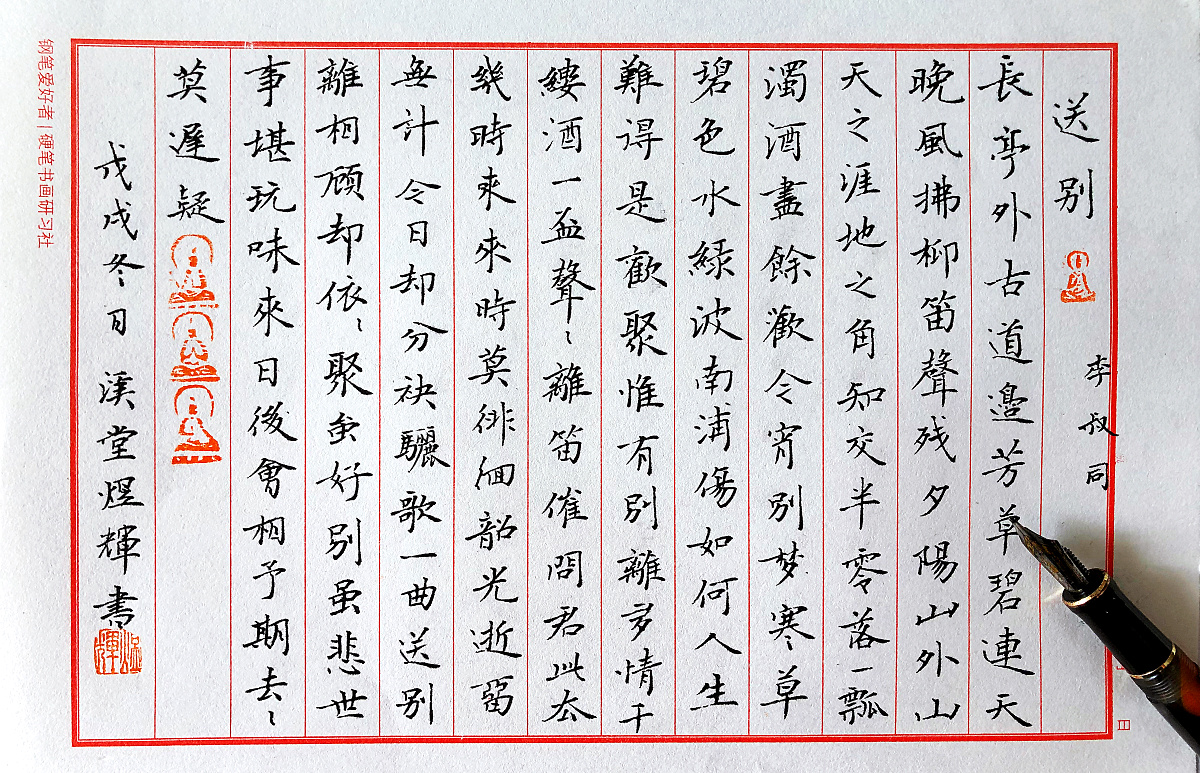 送别
李叔同
長亭外古道邊芳草碧連天
晚風拂柳笛聲残夕陽山外山
天之涯地之角知交半零落一瓢
濁酒盡餘歡今宵别梦寒草
碧色水緑波南浦傷如何人生
難得是歡聚惟有别離多情千
縷酒一盃聲〻離笛催問君此去
幾時來來時莫徘徊韶光逝留
無計今日却分袂驪歌一曲送别
離相顧却依〻聚虽好别虽悲世
事堪玩味來日後會相予期去〻
莫遲疑
戊戌冬日溪堂煜輝書
煜輝
钢笔爱好者 | 硬笔书画研习社